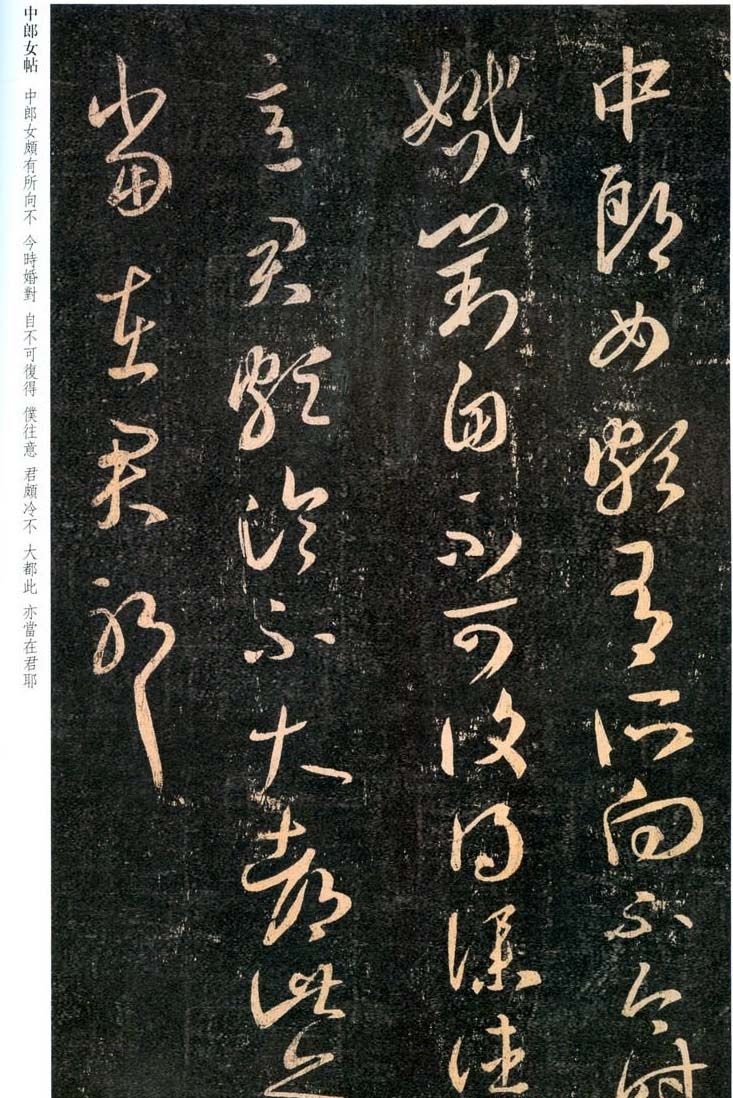 中郎女頗有所向不今時
婚對自不可復得僕往
意君頗冷不大都此亦
當在君耶
中郎女帖 中郎女頗有所向不 今時婚對 自不可復得 僕往意 君頗冷不 大都此 亦當在君耶